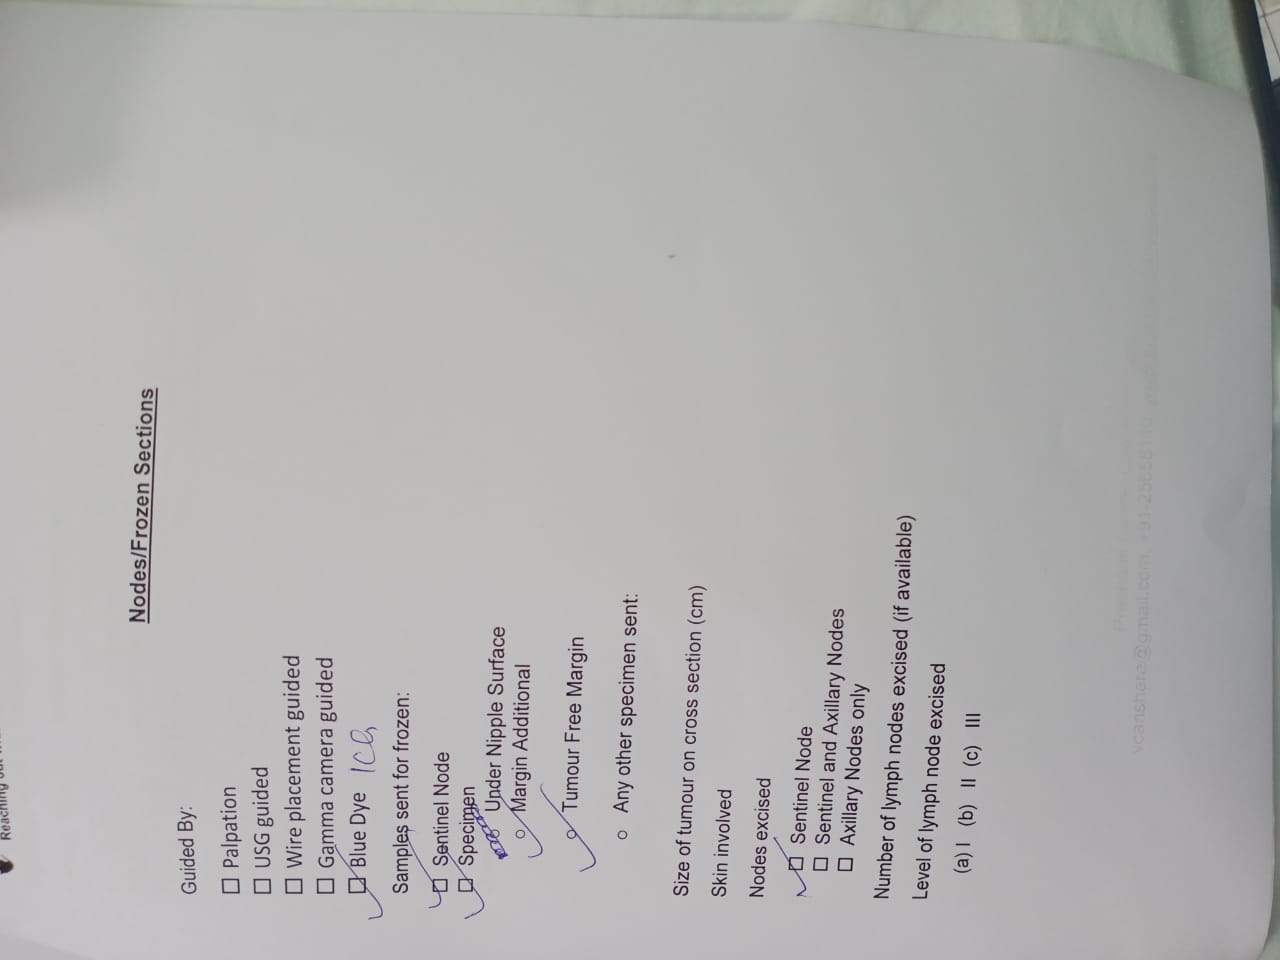 Reaching out
Nodes/Frozen Sections
Guided By:
☐ Palpation
☐ USG guided
☐ Wire placement guided
☐ Gamma camera guided
☑ Blue Dye ICG
Samples sent for frozen:
☑ Sentinel Node
☑ Specimen
○ Under Nipple Surface
○ Margin Additional
○ Tumour Free Margin
○ Any other specimen sent:
Size of tumour on cross section (cm)
Skin involved
Nodes excised
☑ Sentinel Node
☐ Sentinel and Axillary Nodes
☐ Axillary Nodes only
Number of lymph nodes excised (if available)
Level of lymph node excised
(a) I (b) II (c) III